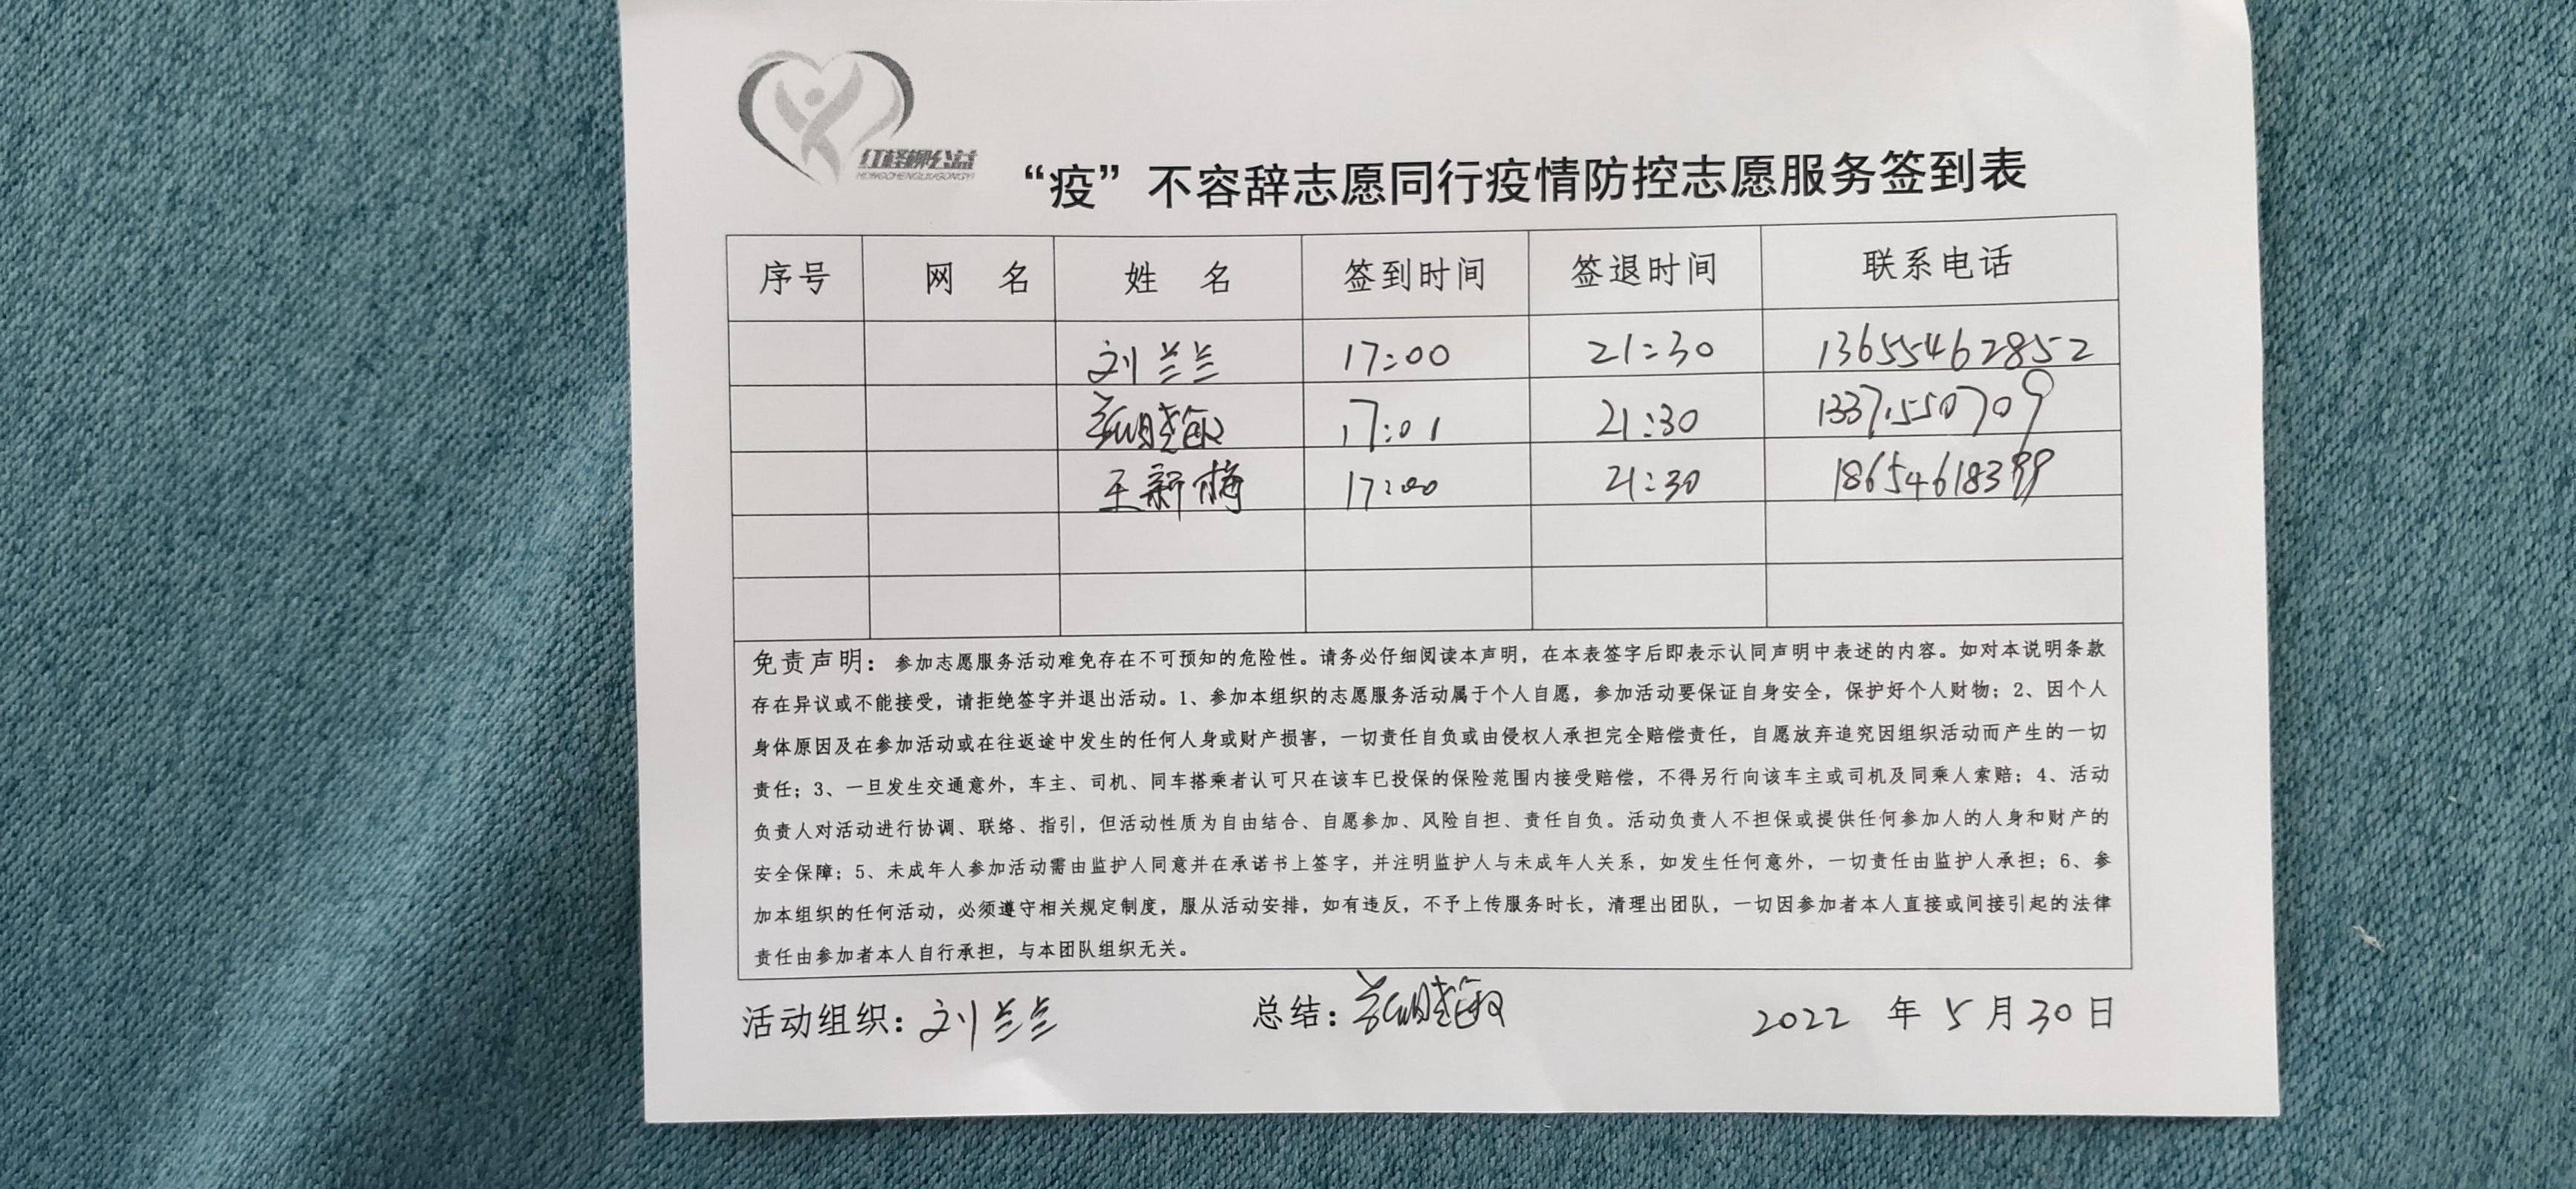 红柽柳公益
HONGCHENGLIUGONGYI
“疫”不容辞志愿同行疫情防控志愿服务签到表
序号 网 名 姓 名 签到时间 签退时间 联系电话
刘兰兰 17:00 21:30 13655462852
17:01 21:30 13371550709
王新梅 17:00 21:30 18654618399
免责声明：参加志愿服务活动难免存在不可预知的危险性。请务必仔细阅读本声明，在本表签字后即表示认同声明中表述的内容。如对本说明条款
存在异议或不能接受，请拒绝签字并退出活动。1、参加本组织的志愿服务活动属于个人自愿，参加活动要保证自身安全，保护好个人财物；2、因个人
身体原因及在参加活动或在往返途中发生的任何人身或财产损害，一切责任自负或由侵权人承担完全赔偿责任，自愿放弃追究因组织活动而产生的一切
责任；3、一旦发生交通意外，车主、司机、同车搭乘者认可只在该车已投保的保险范围内接受赔偿，不得另行向该车主或司机及同乘人索赔；4、活动
负责人对活动进行协调、联络、指引，但活动性质为自由结合、自愿参加、风险自担、责任自负。活动负责人不担保或提供任何参加人的人身和财产的
安全保障；5、未成年人参加活动需由监护人同意并在承诺书上签字，并注明监护人与未成年人关系，如发生任何意外，一切责任由监护人承担；6、参
加本组织的任何活动，必须遵守相关规定制度，服从活动安排，如有违反，不予上传服务时长，清理出团队，一切因参加者本人直接或间接引起的法律
责任由参加者本人自行承担，与本团队组织无关。
活动组织：刘兰兰 总结： 2022 年 5 月 30 日